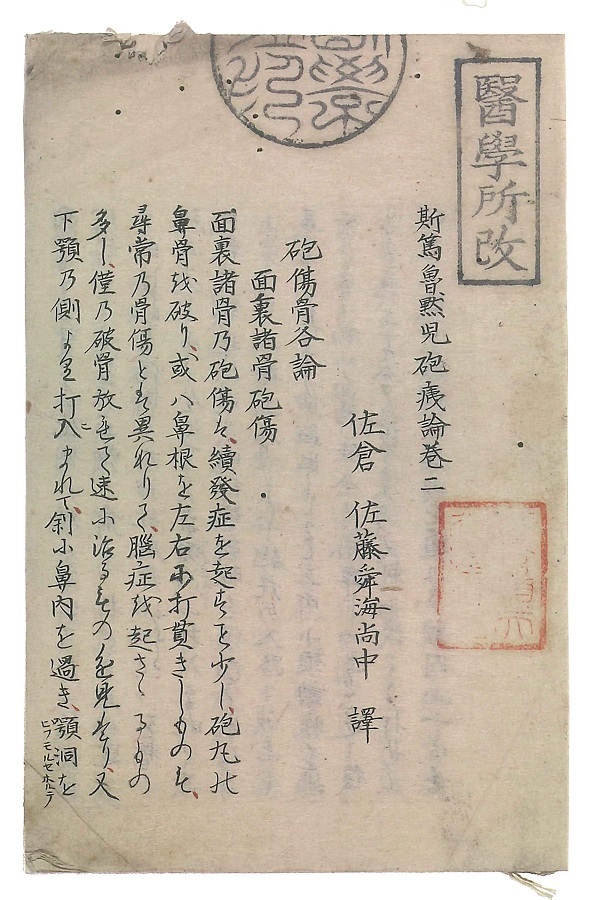 醫學所改
斯篤魯黙児砲痍論巻二
佐倉 佐藤舜海尚中 譯
砲傷骨各論
面裏諸骨砲傷
面裏諸骨乃砲傷ハ、續發症を起すこと少し、砲丸北
鼻骨を破り、或ハ鼻根を左右に打貫きしものハ、
尋常乃骨傷とハ異れりて、腦症を起さゝるもの
多し、僅乃破骨放れて速小治るものを見たり、又
下顎乃側より打入まれて、斜小鼻内を過き、顎洞を
ヒフモルセホルテ